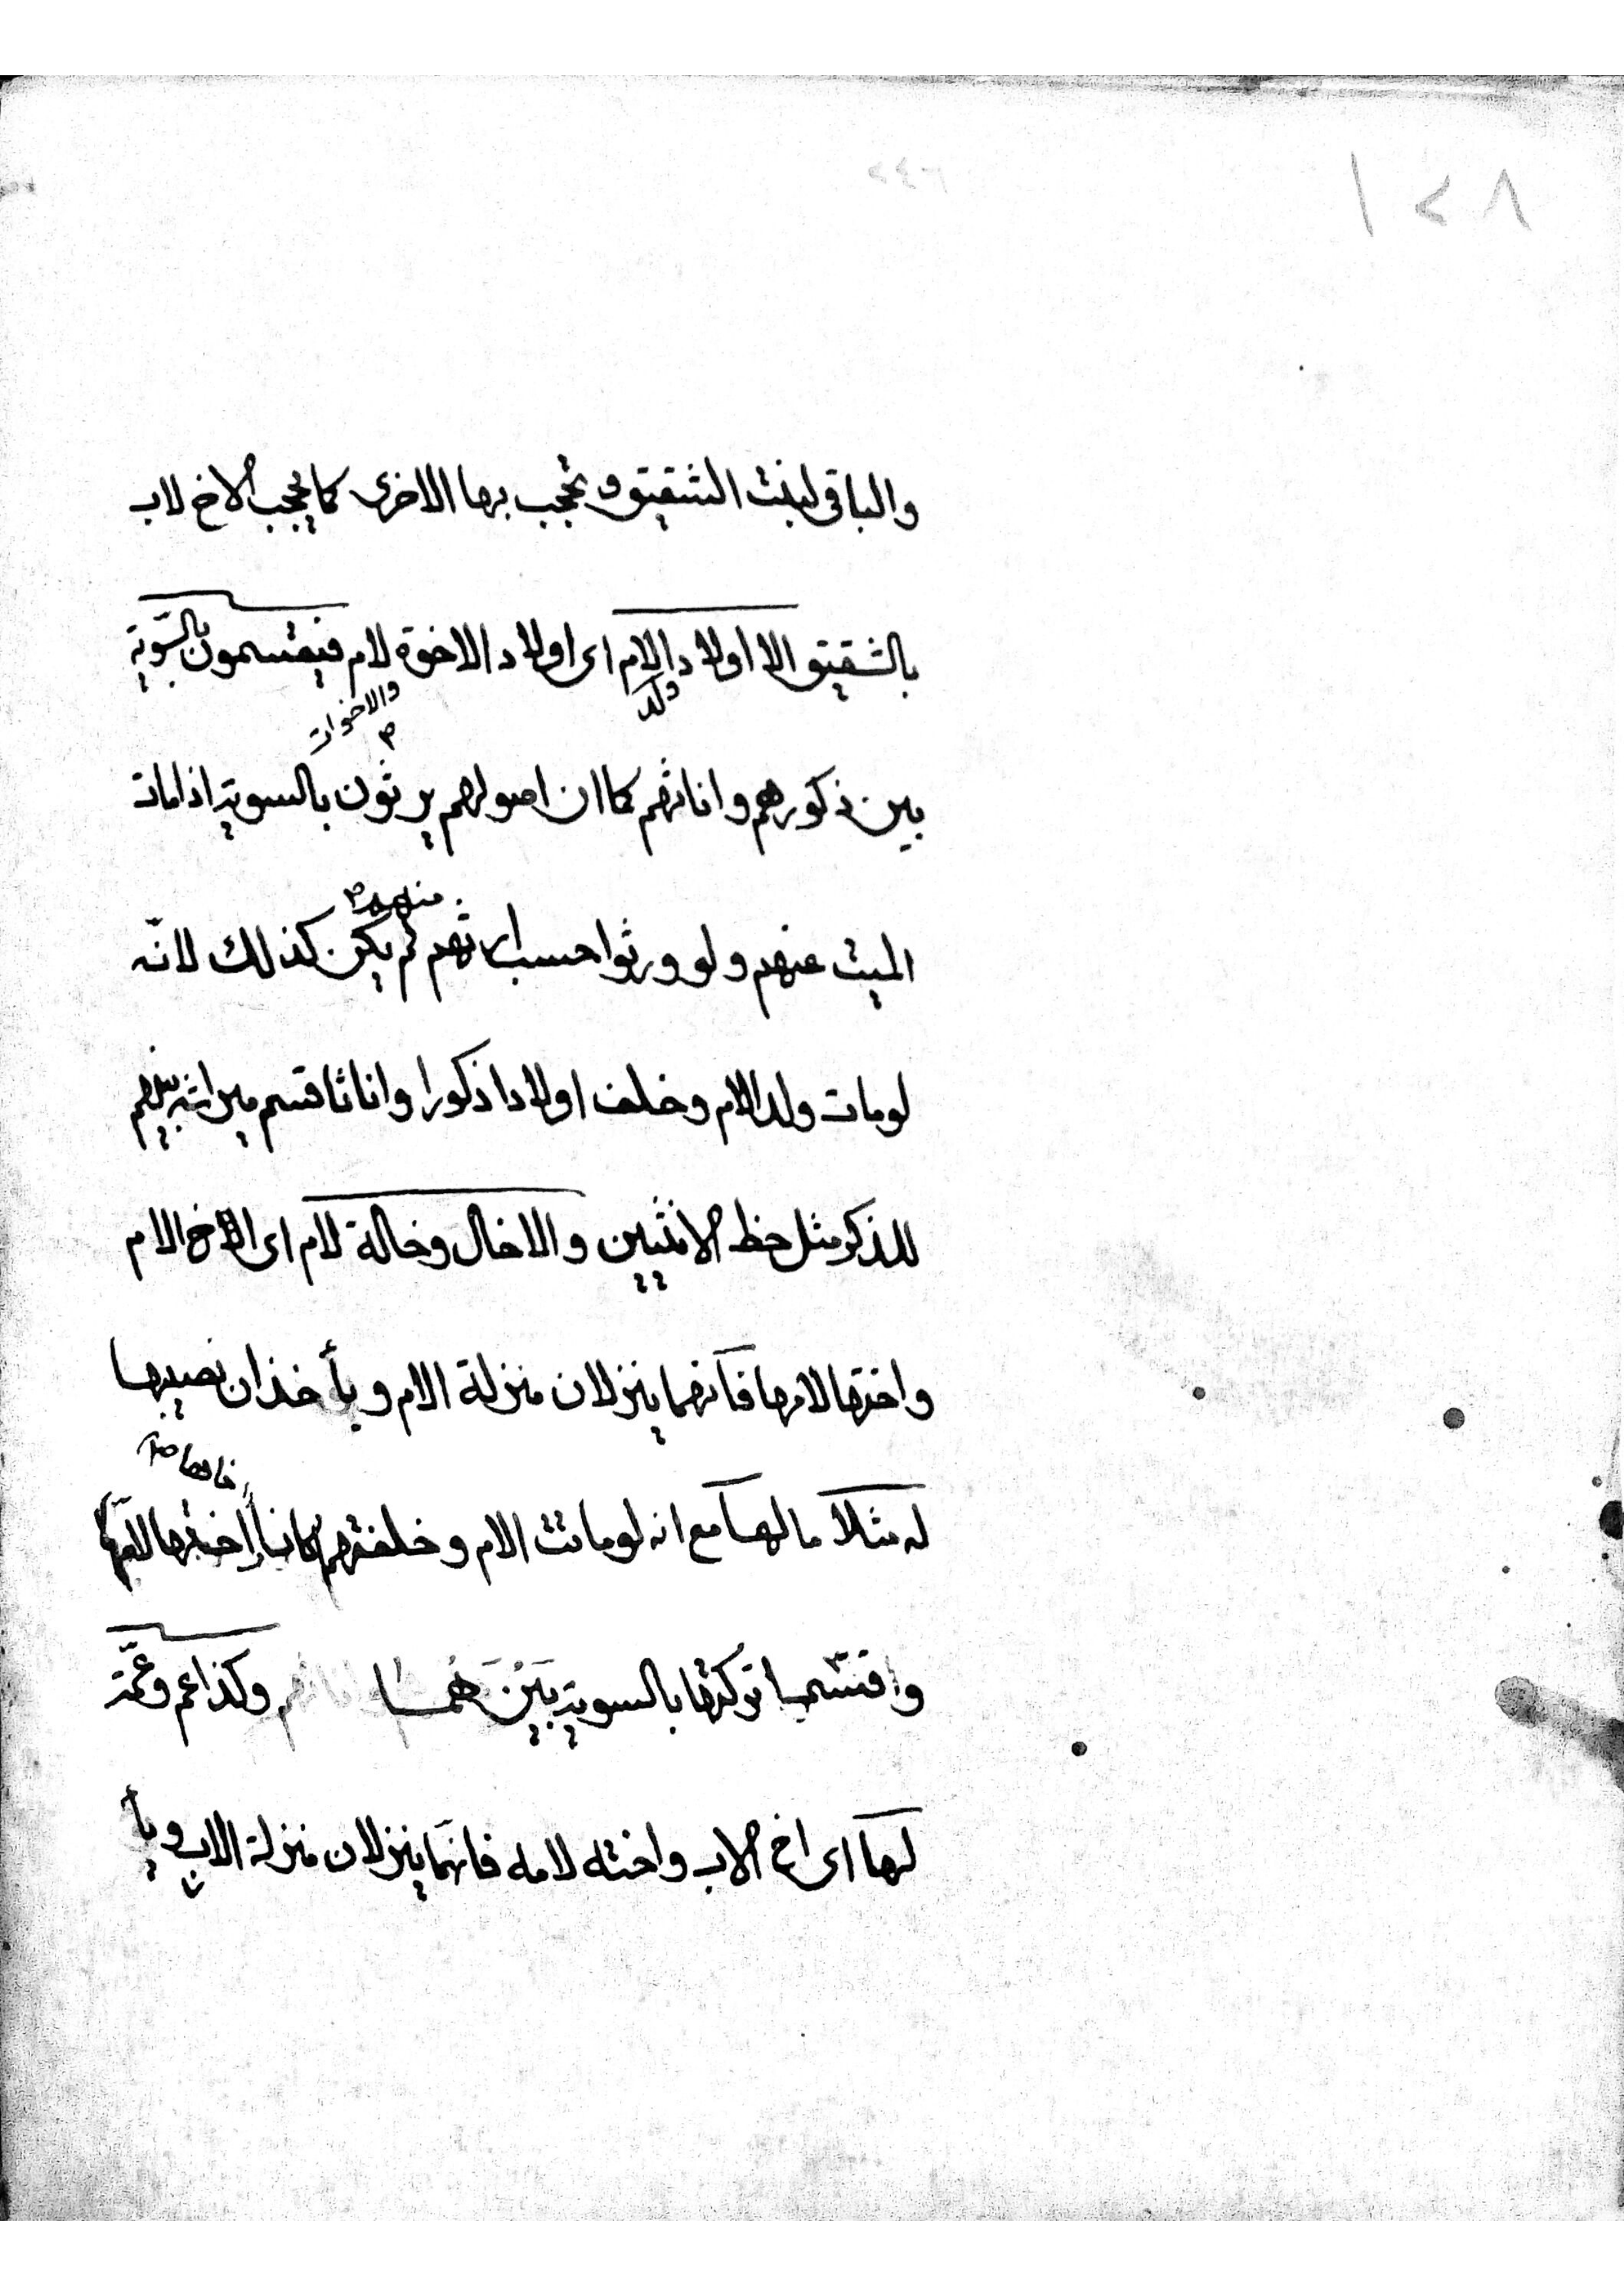 ١٢٨
٢٤٦
والباقى لبنت الشقيق وتحجب بها الاخرى كما يحجب الاخ لاب
بالشقيق الا اولاد الام اى اولاد الاخوة لام فيقتسمون بالسّويّة
ولد
والاخوات
بين ذكورهم واناثهم كما ان اصولهم يرثون بالسوية اذا مات
منهم
الميت عنهم ولو ورثوا حسب ارثهم لم يكن كذلك لانّه
لو مات ولد الام وخلف اولادا ذكورا واناثا قسم ميراثه بينهم
للذكر مثل حظ الانثيين والا خال وخالة لام اى اخ الام
واختها لامها فانهما ينزلان منزلة الام ويأخذان نصيبها
له مثلا ما لها مع انه لو ماتت الام وخلفتهم كانا اختها لامها
واقتسما تركتها بالسوية بَيْنَهُما وكذا عم وعمّة
لها اى اخ الاب واخته لامه فانهما ينزلان منزلة الاب ويأ